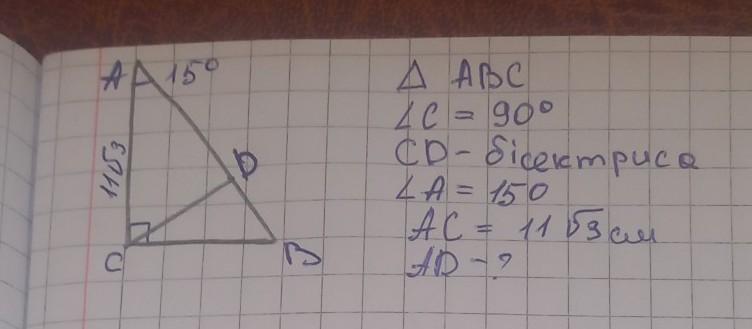 A 15°
11√3
D
C
B
△ ABC
∠C = 90°
CD - бісектриса
∠A = 15°
AC = 11√3 см
AD - ?